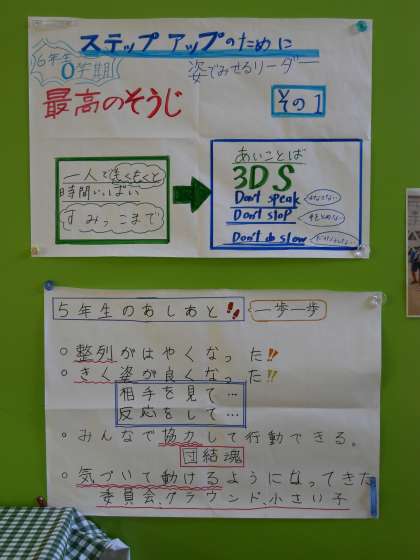 ステップアップのために
6年生
0学期
姿でみせるリーダー
最高のそうじ
その1
一人で黙もくと
時間いっぱい
すみっこまで
あいことば
3DS
Don't speak
Don't stop
Don't do slow
5年生のあしあと!!
一歩一歩
○整列がはやくなった!!
○きく姿が良くなった!!
相手を見て…
反応をして…
○みんなで協力して行動できる。
団結魂
○気づいて動けるようになってきた
委員会、グラウンド、小さい子